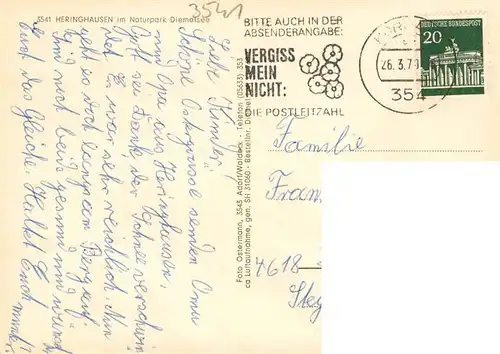 3541
3541 HERINGHAUSEN im Naturpark Diemelsee
BITTE AUCH IN DER
ABSENDERANGABE:
VERGISS
MEIN
NICHT:
DIE POSTLEITZAHL
26.3.79
354
DEUTSCHE BUNDESPOST
20
Liebe Kinder!
Schöne Ostergrüsse senden Oma
und Opa aus Heringhausen.
Gott sei Dank der Schnee verschwin
det. Es war sehr reichlich. Nun
geht es doch langsam Bergauf.
Sind noch beide gesund und wünsch
euch das Gleiche. Haltet Euch immer
Foto Ostermann, 3543 Adorf/Waldeck - Telefon (05633) 333
ca Luftaufnahme, gen. SH 31060 - Bestellnr. Diemel
Familie
Fran
4618